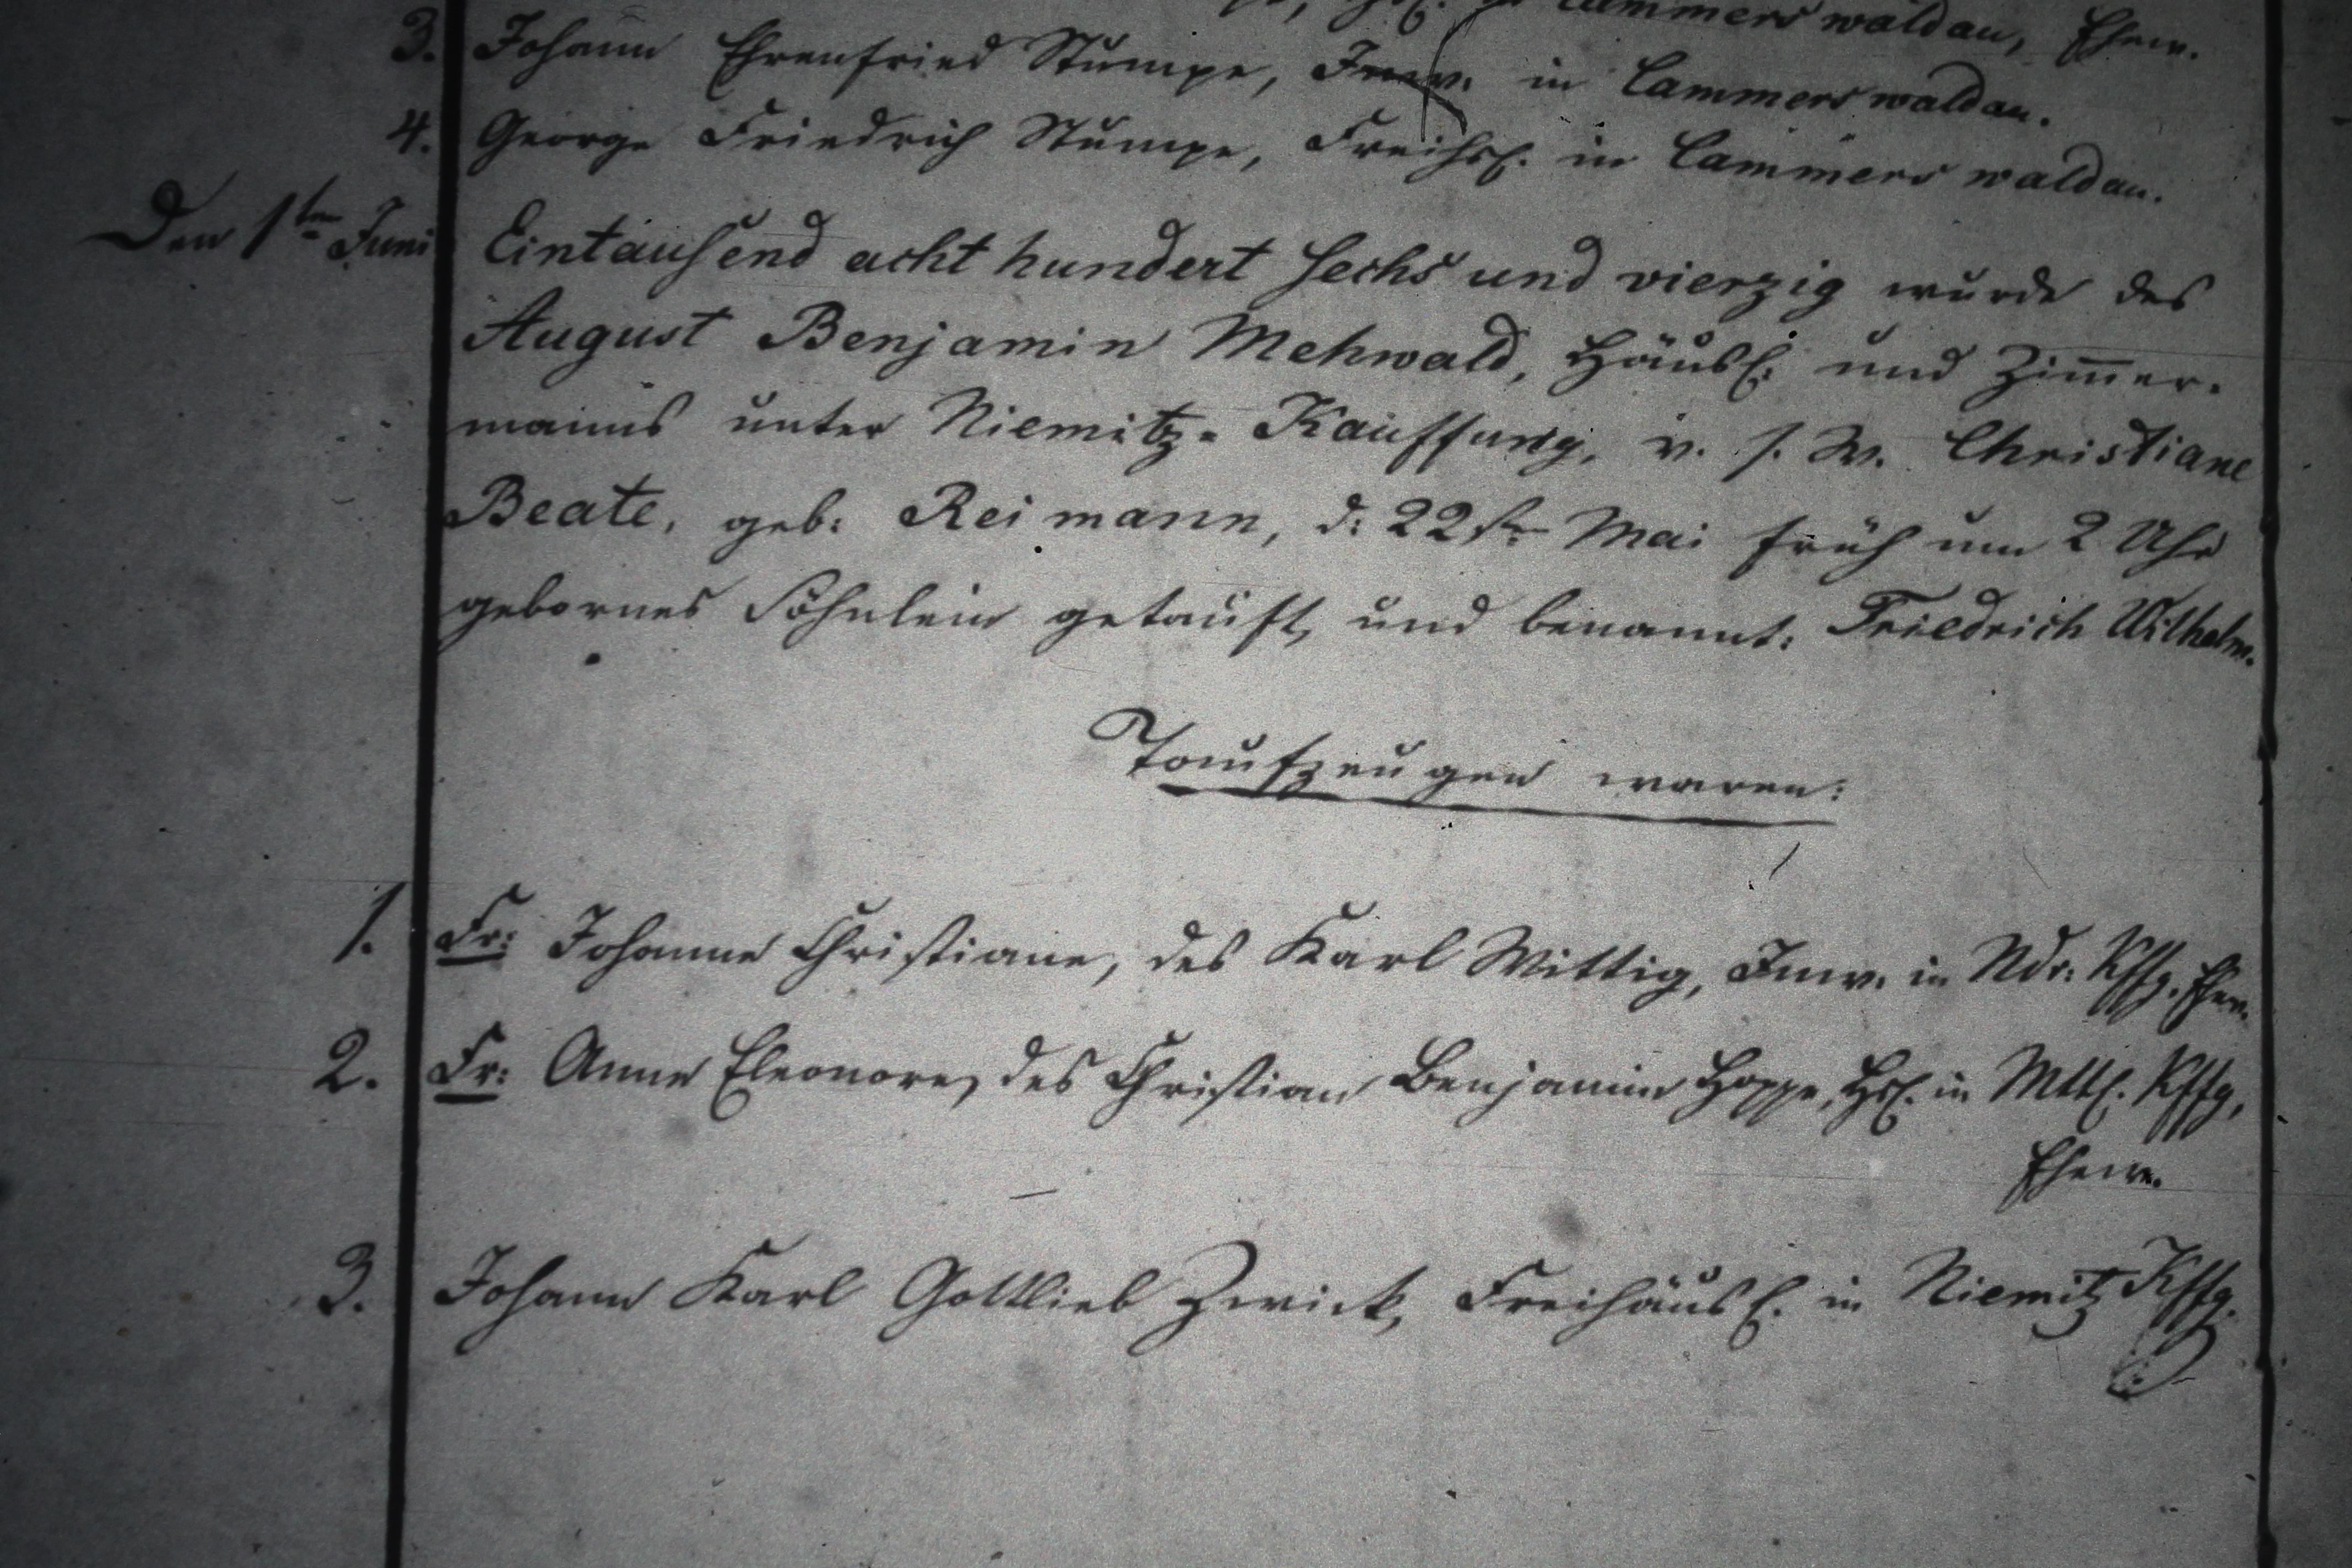 Cammerswaldau, Ehew.
3. Johann Ehrenfried Stumpe, Inw. in Cammerswaldau.
4. George Friedrich Stumpe, Freihsl. in Cammerswaldau.
Den 1ten Juni Eintausend acht hundert sechs und vierzig wurde des
August Benjamin Mehwald, Häusl: und Zim̅er-
manns unter Niemitz-Kauffung, v. s. W. Christiane
Beate, geb: Reimann, d: 22st. Mai früh um 2 Uhr
gebornes Söhnlein getauft, und benannt: Friedrich Wilhelm.
Taufzeugen waren:
1. Fr: Johanne Christiane, des Karl Wittig, Inw. in Ndr: Kffg. Ehew.
2. Fr: Anne Eleonore, des Christian Benjamin Hoppe, Hsl. in Mttl. Kffg,
Ehew.
3. Johann Karl Gottlieb Zwick, Freihäusl. in Niemitz Kffg.